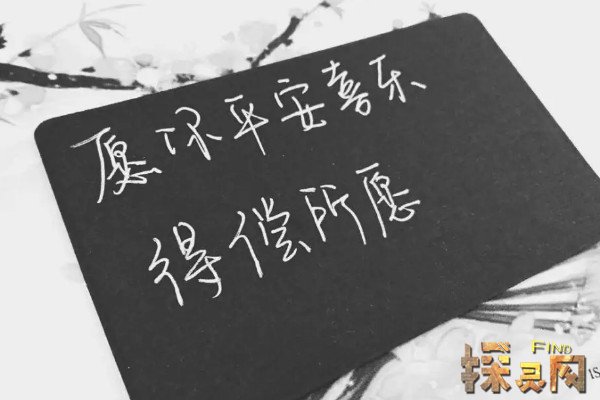 愿你平安喜乐
得偿所愿
FIND
探灵网
IS